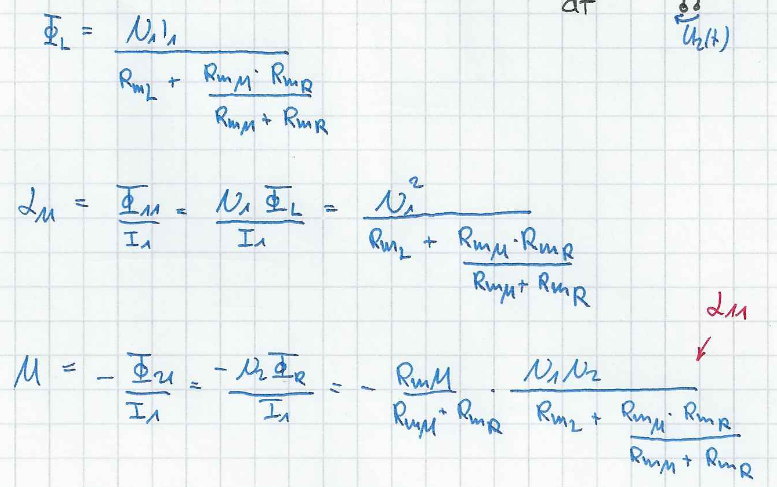 dt
U₂(t)
Φ_L = N₁I₁ / (R_mL + (R_mM · R_mR) / (R_mM + R_mR))
L₁₁ = Φ₁₁ / I₁ = N₁ Φ_L / I₁ = N₁² / (R_mL + (R_mM · R_mR) / (R_mM + R_mR))
L₁₁
M = - Φ₂₁ / I₁ = - N₂ Φ_R / I₁ = - R_mM / (R_mM + R_mR) · N₁ N₂ / (R_mL + (R_mM · R_mR) / (R_mM + R_mR))